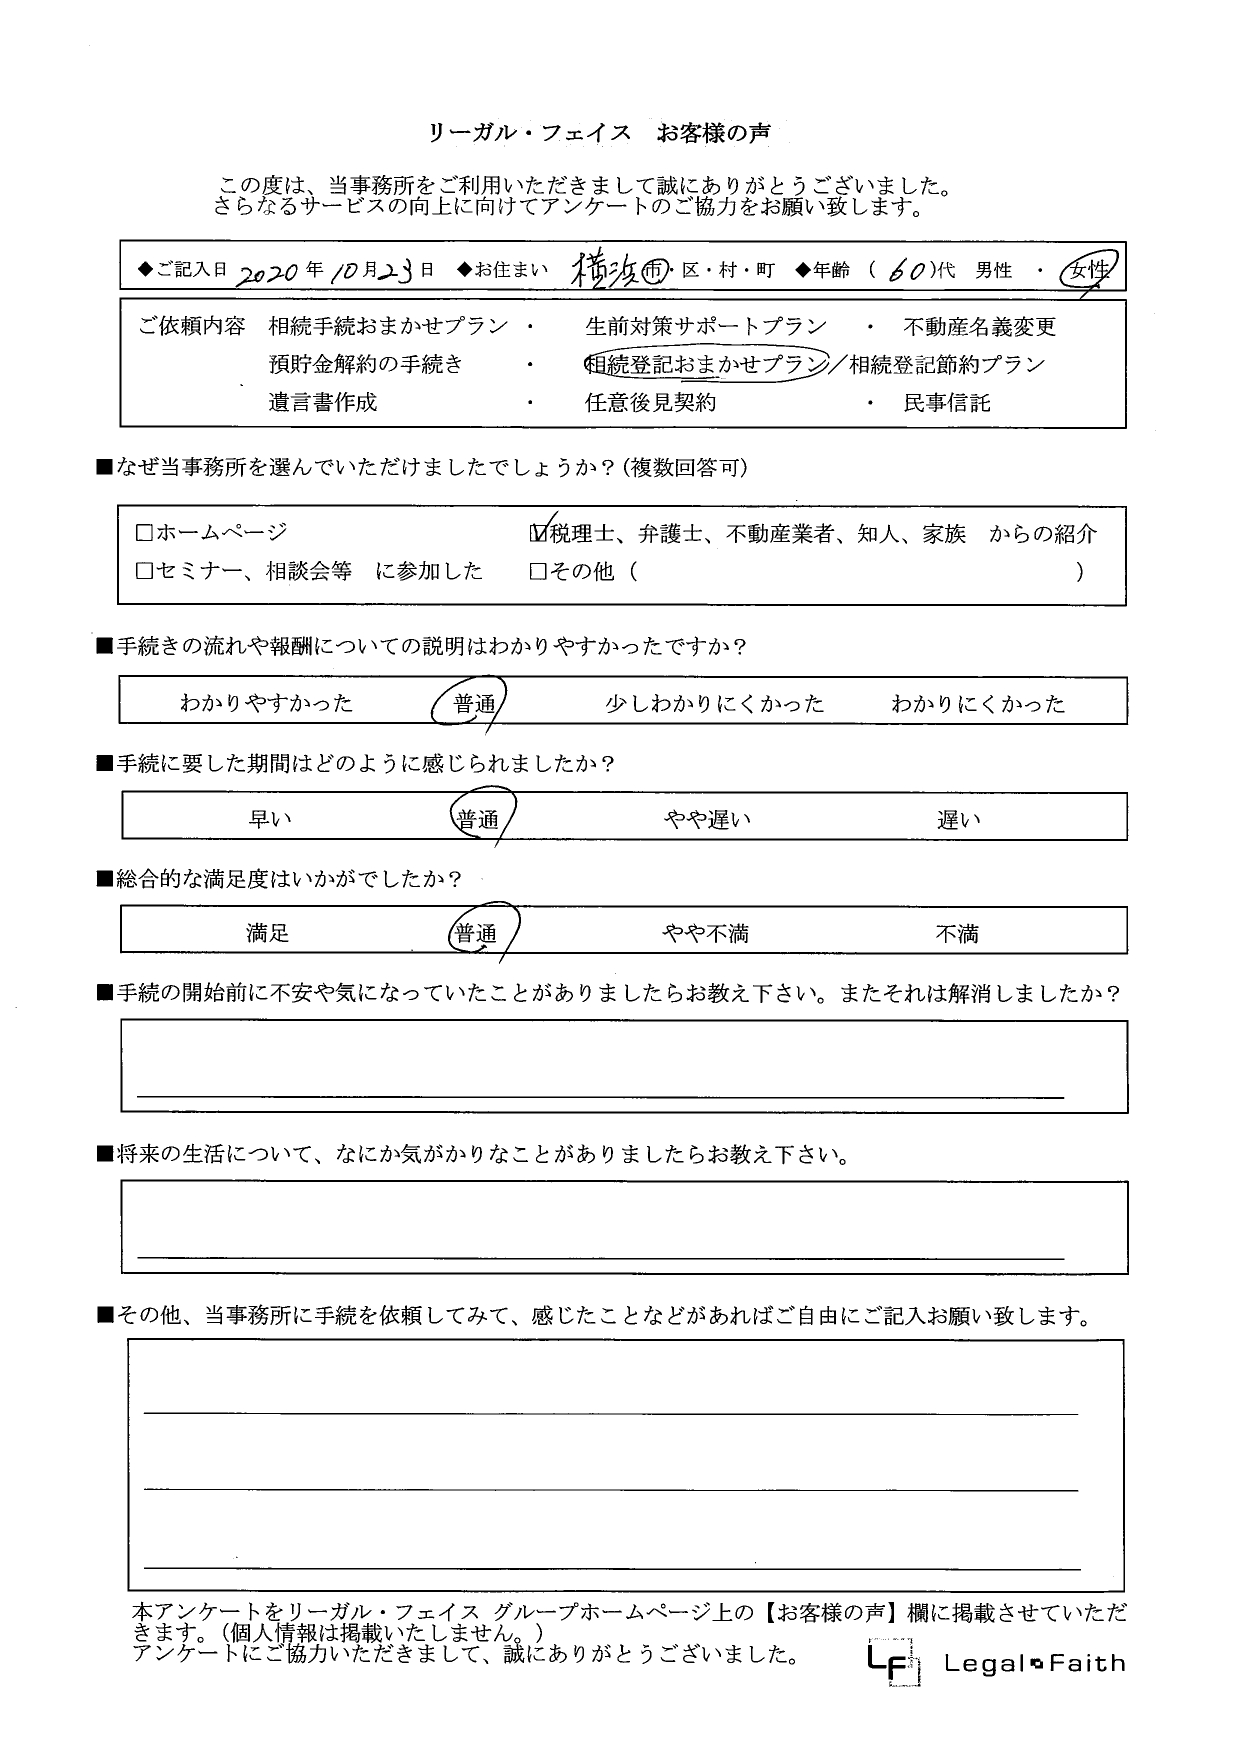 リーガル・フェイス　お客様の声
この度は、当事務所をご利用いただきまして誠にありがとうございました。
さらなるサービスの向上に向けてアンケートのご協力をお願い致します。
◆ご記入日 2020 年 10 月 23 日 ◆お住まい 横浜 市・区・村・町 ◆年齢 ( 60 )代 男性 ・ 女性
ご依頼内容 相続手続おまかせプラン ・ 生前対策サポートプラン ・ 不動産名義変更
預貯金解約の手続き ・ 相続登記おまかせプラン／相続登記節約プラン
遺言書作成 ・ 任意後見契約 ・ 民事信託
■なぜ当事務所を選んでいただけましたでしょうか？(複数回答可)
□ホームページ ☑税理士、弁護士、不動産業者、知人、家族　からの紹介
□セミナー、相談会等　に参加した □その他 ( )
■手続きの流れや報酬についての説明はわかりやすかったですか？
わかりやすかった 普通 少しわかりにくかった わかりにくかった
■手続に要した期間はどのように感じられましたか？
早い 普通 やや遅い 遅い
■総合的な満足度はいかがでしたか？
満足 普通 やや不満 不満
■手続の開始前に不安や気になっていたことがありましたらお教え下さい。またそれは解消しましたか？
■将来の生活について、なにか気がかりなことがありましたらお教え下さい。
■その他、当事務所に手続を依頼してみて、感じたことなどがあればご自由にご記入お願い致します。
本アンケートをリーガル・フェイス グループホームページ上の【お客様の声】欄に掲載させていただ
きます。(個人情報は掲載いたしません。)
アンケートにご協力いただきまして、誠にありがとうございました。
LF Legal Faith